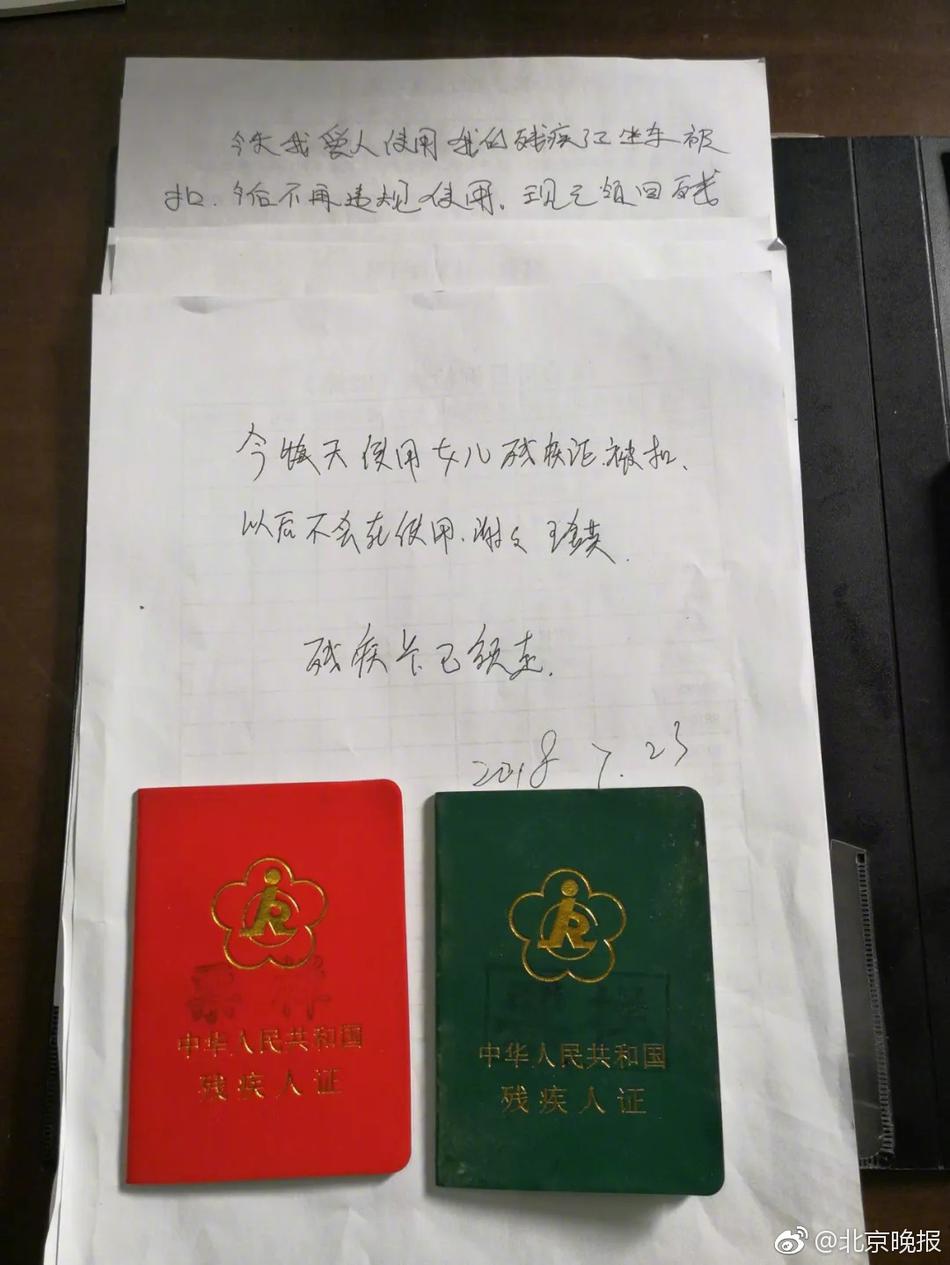 今天我爱人使用我的残疾证坐车被
扣.今后不再违规使用.现已领回残
今 天使用女儿残疾证被扣.
以后不会在使用.谢谢 王 英.
残疾卡已领走.
2018 7.23
中华人民共和国
残疾人证
中华人民共和国
残疾人证
@北京晚报